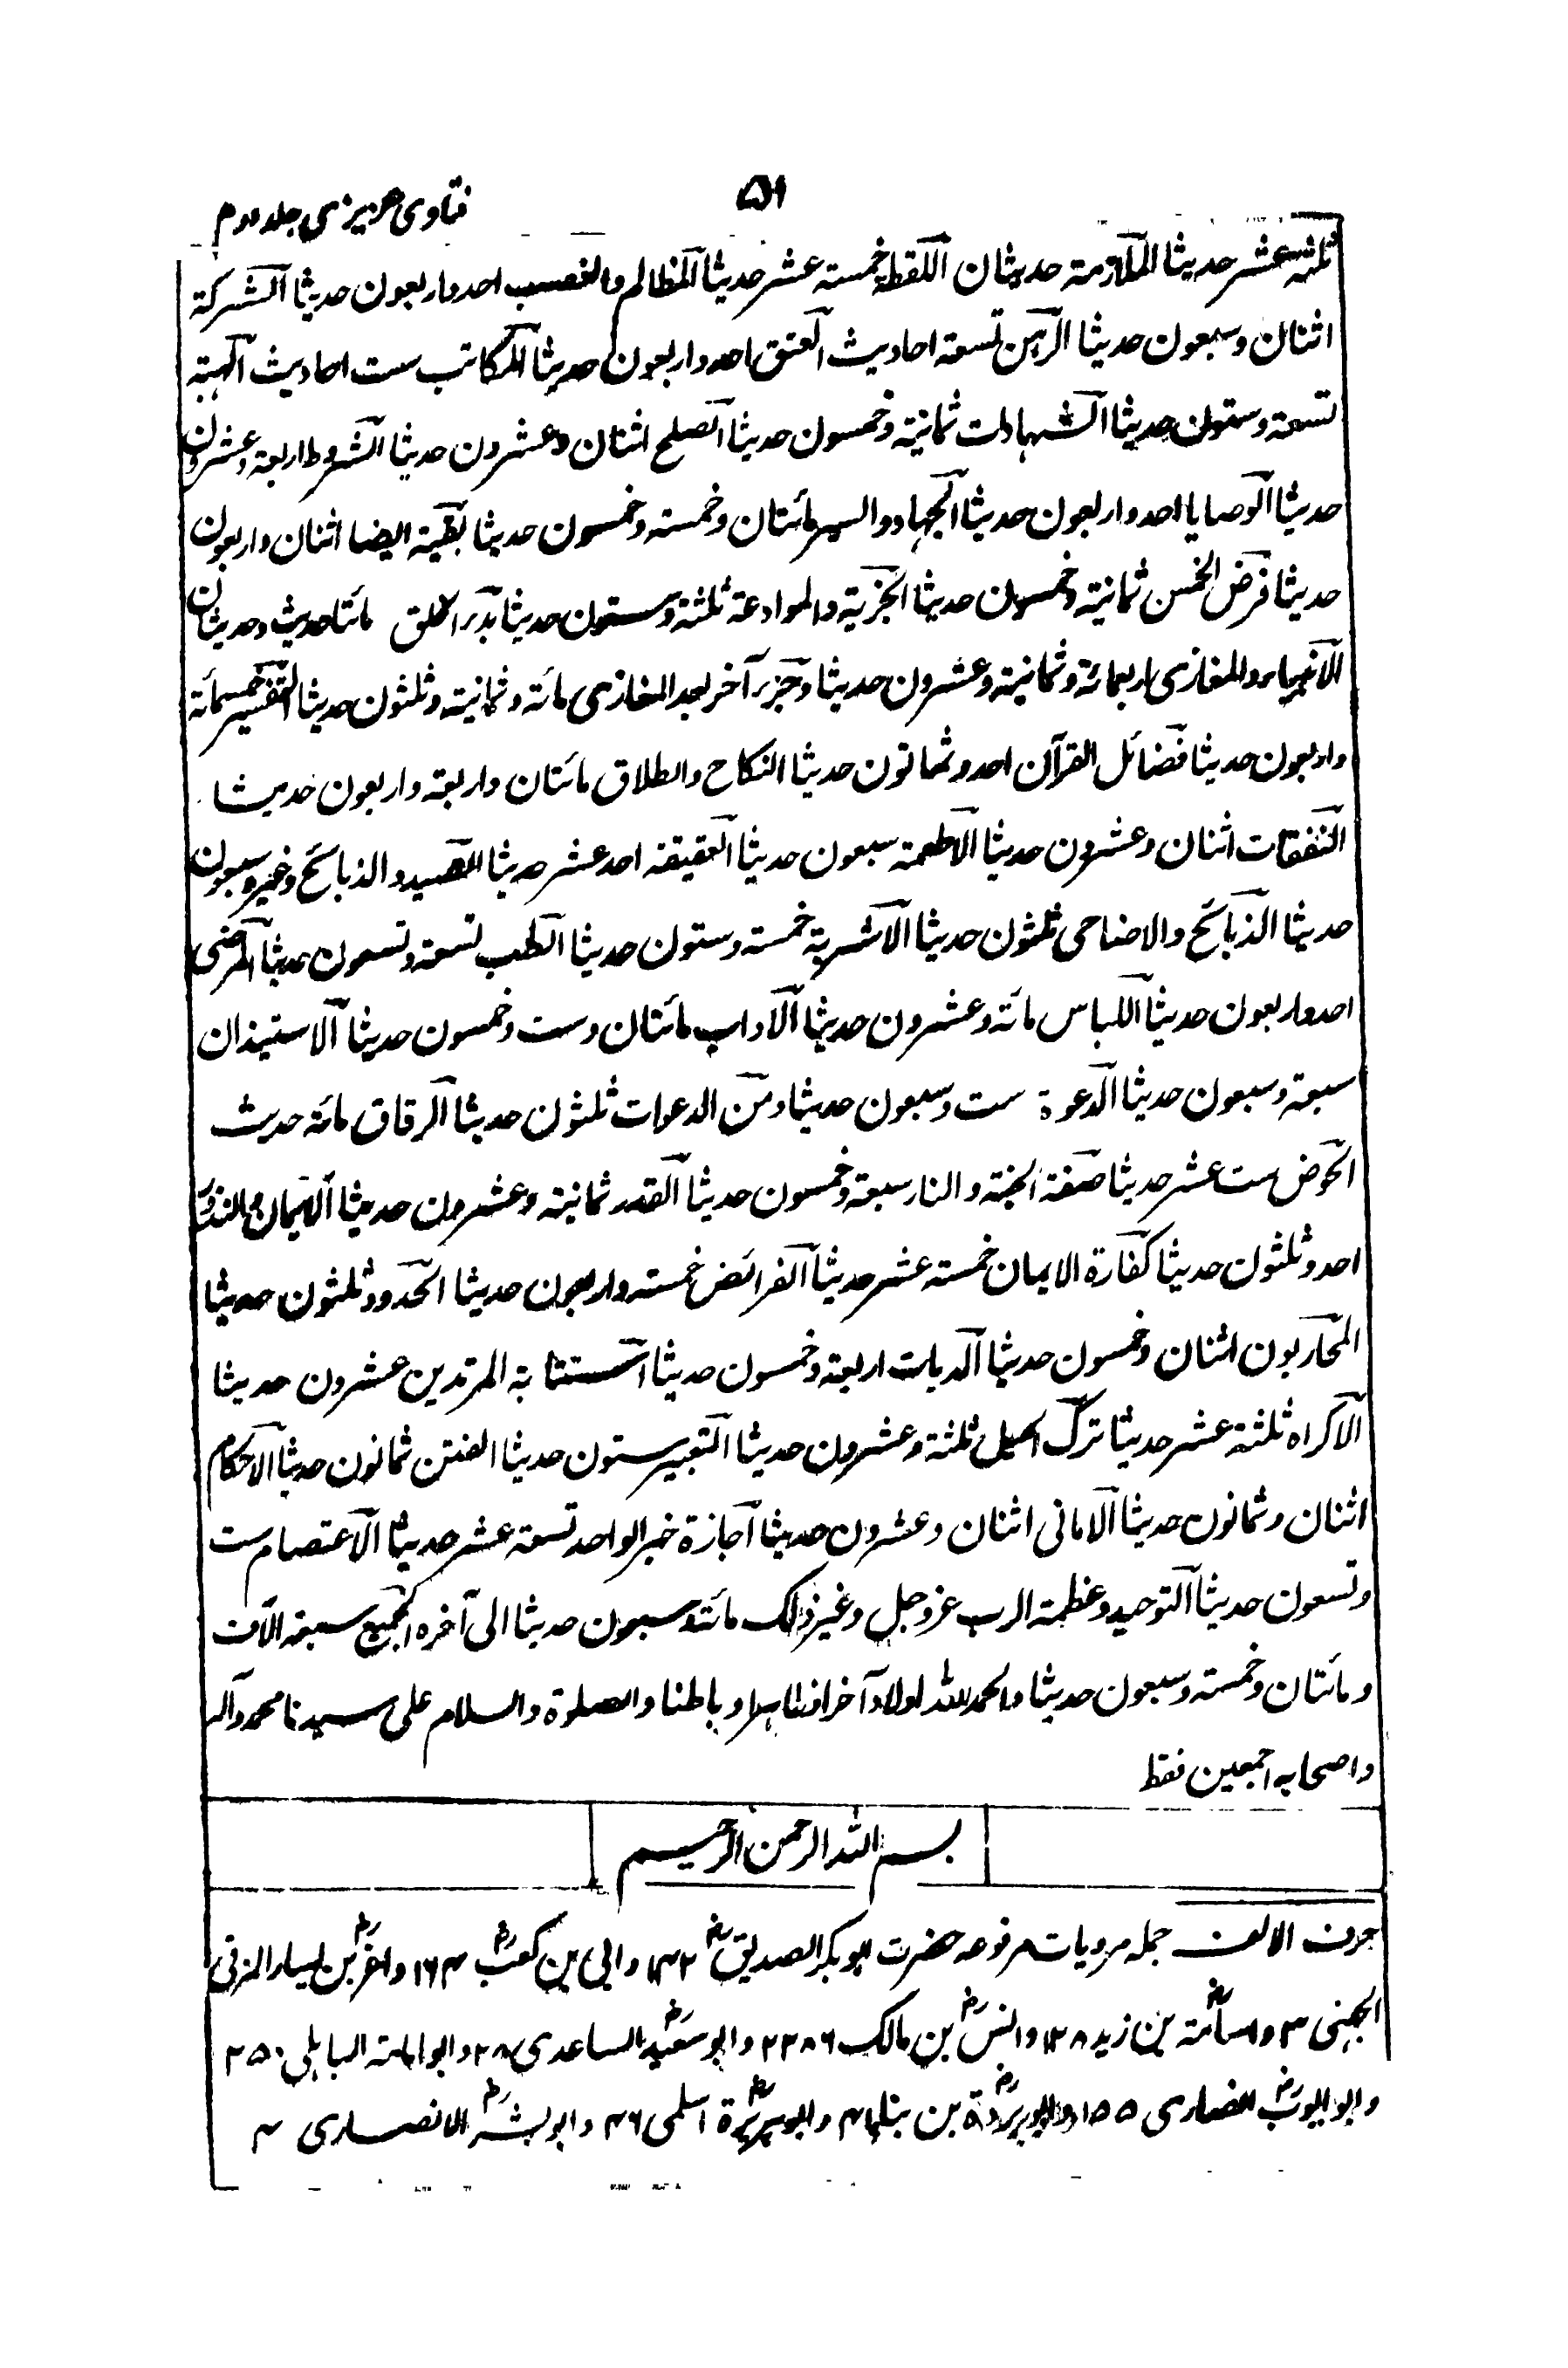 ۵۱
فتاوی عزیزی جلد دوم
ثلثه عشر حدیثا الملازمة حدیثان اللقطة خمسته عشر حدیثا المظالم والغصب احد واربعون حدیثا الشرکة
اثنان وسبعون حدیثا الرہن تسعة احادیث العتق احد واربعون حدیثا المکاتب ست احادیث الہبة
تسعة وستون حدیثا الشہادات ثمانیة وخمسون حدیثا الصلح اثنان وعشرون حدیثا الشروط اربعة وعشرون
حدیثا الوصایا احد واربعون حدیثا الجہاد والسیر مائتان وخمسته وخمسون حدیثا بقیة ایضا اثنان واربعون
حدیثا فرض الخمس ثمانیة وخمسون حدیثا الجزیة والموادعة ثلثة وستون حدیثا بدء الخلق مائتا حدیث وحدیثان
الانبیاء والمغازی اربعمائة وثمانیة وعشرون حدیثا وجزء آخر بعد المغازی مائة وثمانیة وثلثون حدیثا التفسیر خمسمائة
واربعون حدیثا فضائل القرآن احد وثمانون حدیثا النکاح والطلاق مائتان واربعة واربعون حدیثا
النفقات اثنان وعشرون حدیثا الاطعمة سبعون حدیثا العقیقة احد عشر حدیثا الصید والذبائح وغیره سبعون
حدیثا الذبائح والاضاحی ثلثون حدیثا الاشربة خمسة وستون حدیثا الطب تسعة وتسعون حدیثا المرضی
احد واربعون حدیثا اللباس مائة وعشرون حدیثا الآداب مائتان وست وخمسون حدیثا الاستیذان
سبعة وسبعون حدیثا الدعوة ست وسبعون حدیثا ومن الدعوات ثلثون حدیثا الرقاق مائة حدیث
الحوض ست عشر حدیثا صفة الجنة والنار سبعة وخمسون حدیثا القدر ثمانیة وعشرون حدیثا الایمان والنذور
احد وثلثون حدیثا کفارة الایمان خمسة عشر حدیثا الفرائض خمسة واربعون حدیثا الحدود ثلثون حدیثا
المحاربون اثنان وخمسون حدیثا الدیات اربعة وخمسون حدیثا استتابة المرتدین عشرون حدیثا
الاکراه ثلثة عشر حدیثا ترک الحیل ثلثة وعشرون حدیثا التعبیر ستون حدیثا الفتن ثمانون حدیثا الاحکام
اثنان وثمانون حدیثا الامانی اثنان وعشرون حدیثا اجازة خبر الواحد تسعة عشر حدیثا الاعتصام ست
وتسعون حدیثا التوحید وعظمة الرب عز وجل وغیر ذلک مائة وسبعون حدیثا الی آخره الجمیع سبعة الآف
ومائتان وخمسة وسبعون حدیثا والحمد لله اولا وآخرا وظاہرا وباطنا والصلوة والسلام علی سیدنا محمد وآلہ
واصحابہ اجمعین فقط
بسم الله الرحمن الرحیم
حرف الالف جملہ مرویات مرفوعہ حضرت ابوبکر الصدیقؓ ۱۴۲ وابی بن کعبؓ ۱۶۴ واغرؓ بن یسار المزنی
الجہنی ۳ واسامةؓ بن زید ۱۲۸ وانسؓ بن مالک ۲۲۸۶ وابوسعیدؓ الساعدی ۲۸ وابو امامة الباہلی ۲۵۰
وابو ایوبؓ انصاری ۱۵۵ وابوبردةؓ بن نیار ۴ وابوبرزةؓ اسلمی ۴۶ وابو بشیرؓ الانصاری ۴